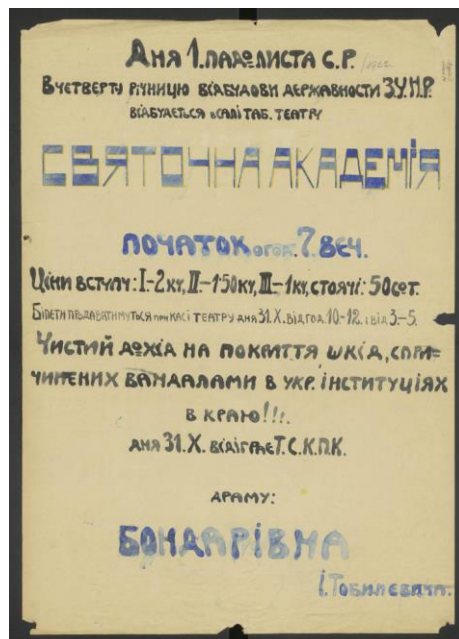 Дня 1. падолиста с.р. /1922
В четверту річницю відбудови державности З.У.Н.Р.
відбудеться в салі таб. театру
СВЯТОЧНА АКАДЕМІЯ
ПОЧАТОК о год. 7 ВЕЧ.
Ціни вступу: I-2 кч, II-1·50 кч, III-1 кч, стоячі: 50 сот.
Білети продаватимуться при касі театру дня 31.X. від год. 10-12. і від 3-5.
Чистий дохід на покриття шкід, спри-
чинених вандалами в укр. інституціях
в краю!!!.
дня 31.X. відіграє Т.С.К.П.К.
драму:
БОНДАРІВНА
І. Тобилевича.